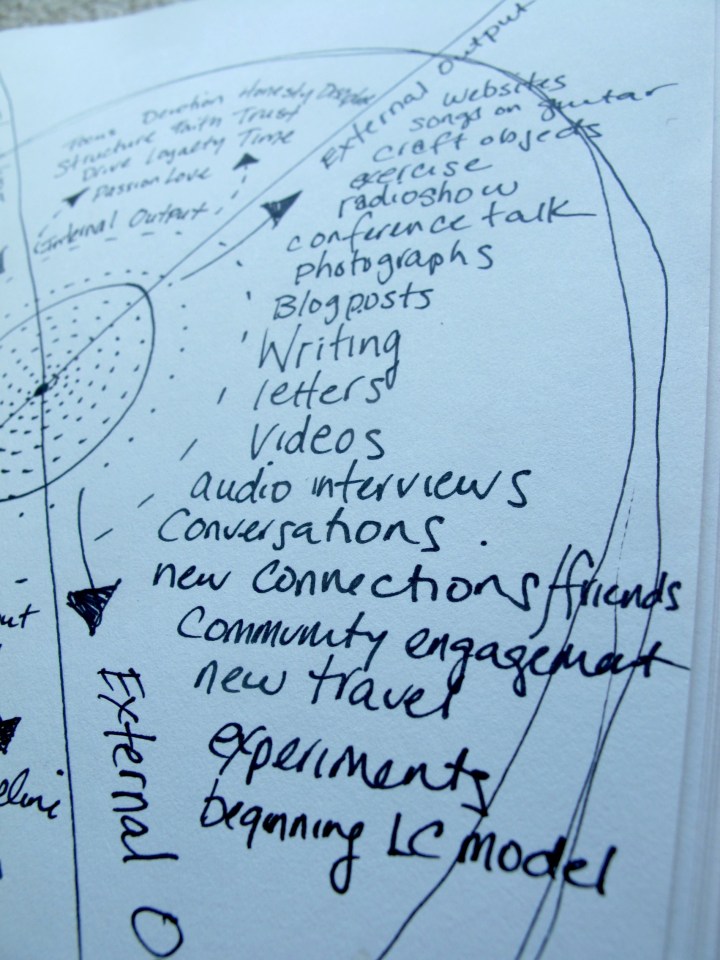 External Output
Focus Devotion Honesty Discipline
Structure Faith Trust
Drive Loyalty Time
Passion Love
Internal Output
websites
songs on guitar
craft objects
exercise
radioshow
conference talk
photographs
Blogposts
Writing
letters
Videos
audio interviews
Conversations.
new connections/friends
Community engagement
new travel
experiments
beginning LC model
External O